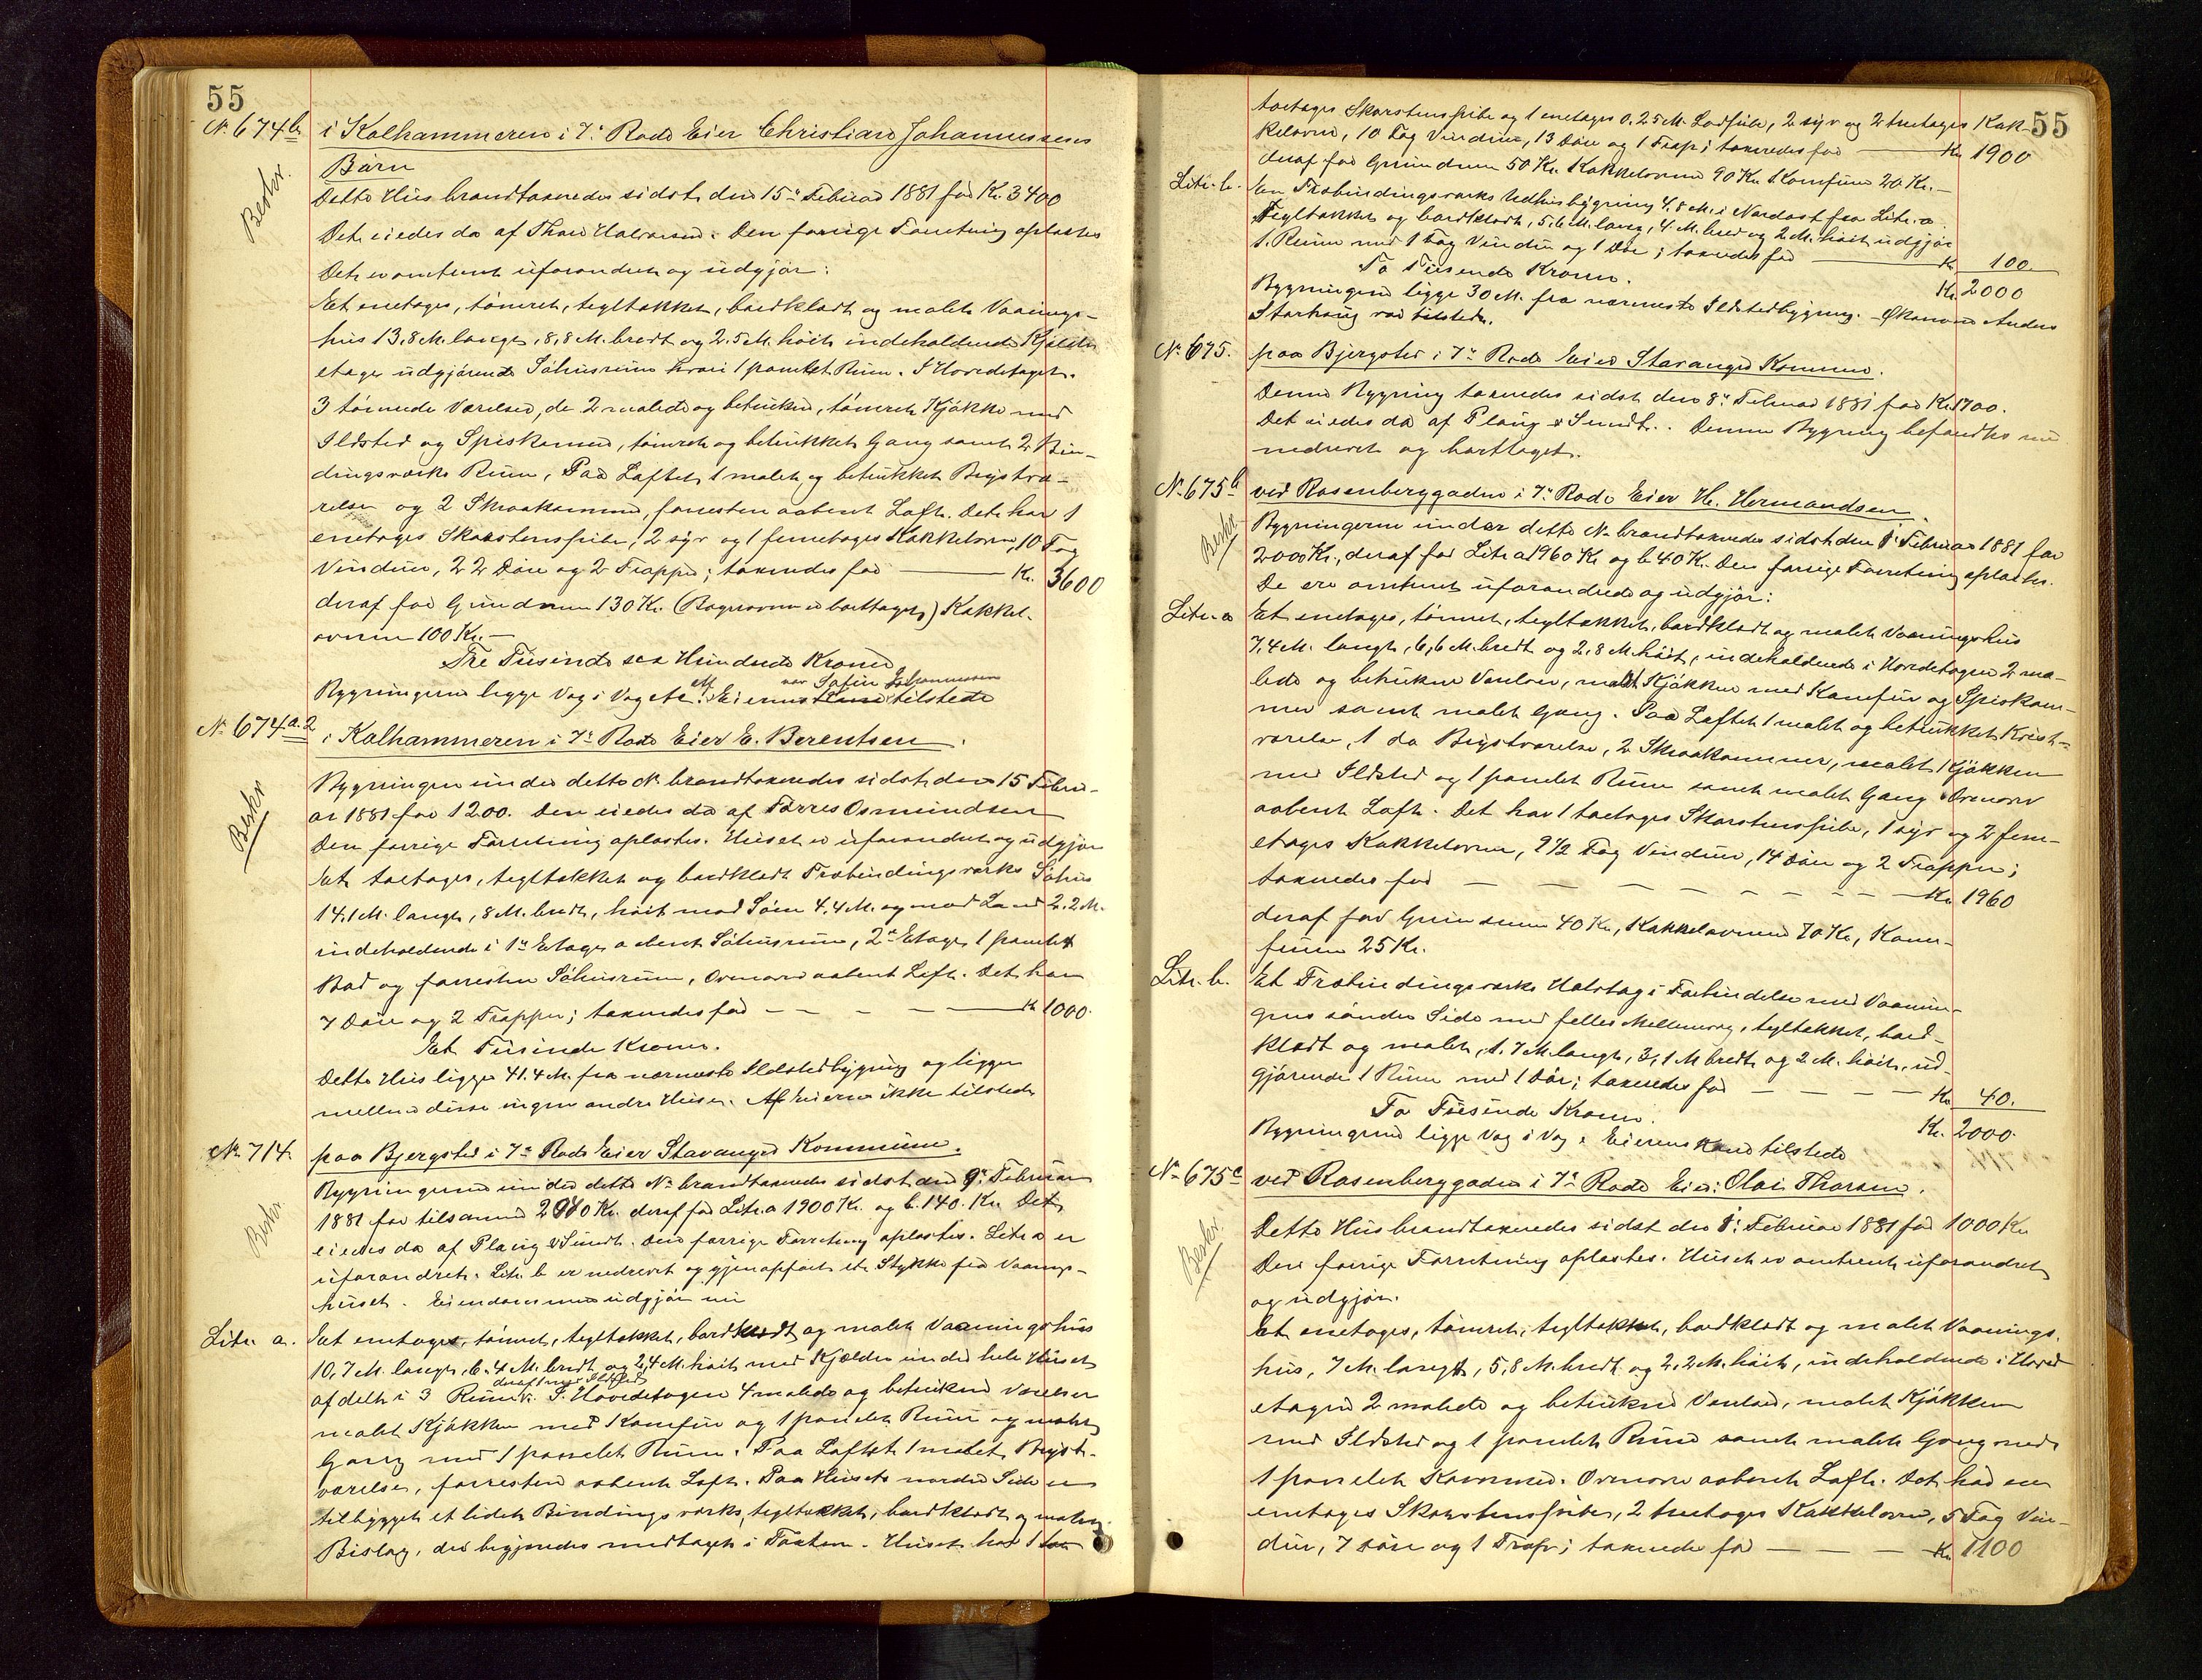 55
No 674b. i Kalhammeren i 7de Rode Eier Christian Johannessens
Børn
Beskr.
Dette Hus brandtaxeredes sidst den 15de Februar 1881 for Kr. 3400
Det eiedes da af Thore Halvorsen. Den forrige Forretning oplæstes
Det er omtrent uforandret og udgjør:
Et enetages, tømret, tegltækket, bordklædt og malet Vaanings-
hus 13,8 M. langt, 8,8 M. bredt og 2.5 M. høit indeholdende Kjælder
etage udgjørende Søhusrum hvori 1 panelet Rum. I Hovedetagen.
3 tømrede Værelser, de 2 malede og betrukne, tømret Kjøkken med
Ildsted og Spiskammer, tømret og betrukket Gang samt 2 Bin-
dingsværks Rum, Paa Loftet 1 malet og betrukket Brystvæ-
relse og 2 Skraakammere, forresten aabent Loft. Det har 1
enetages Skorstenspibe, 2 syv og 1 femetages Kakkelovne, 10 Fag
Vinduer, 22 Døre og 2 Trapper; taxeredes for — Kr. 3600
deraf for Grundmur 130 Kr. (Bagerovnen er borttaget) Kakkel-
ovnene 100 Kr. —
Tre Tusinde sex Hundrede Kroner
Bygningerne ligge Væg i Væg Af Eierne var Søfin Johannesen tilstede
No 674a.2 i Kalhammeren i 7de Rode Eier E. Berentsen.
Beskr
Bygningen under dette No brandtaxeredes sidst den 15 Febru-
ar 1881 for 1200. Den eiedes da af Tørres Osmundsen
Den forrige Forretning oplæstes. Huset er uforandret og udgjør
Et toetages, tegltækket og bordklædt Træbindingsværks Søhus
14.1 M. langt, 8 M. bredt, høit mod Søen 4.4 M. og mod Land 2.2 M.
indeholdende i 1ste Etage aabent Søhusrum, 2den Etage 1 panelet
Bod og forresten Søhusrum, Ovenover aabent Loft. Det har
7 Døre og 2 Trapper; taxeredes for — — — — — Kr 1000.
Et Tusinde Kroner.
Dette Hus ligger 41.4 M. fra nærmeste Ildstedbygning og ligger
mellem disse ingen andre Huse. Af Eierne ikke tilstede
No 714. paa Bjergsted i 7de Rode Eier Stavanger Kommune.
Beskr.
Bygningerne under dette No brandtaxeredes sidst den 9de Februar
1881 for tilsammen 2040 Kr. deraf for Litr. a 1900 Kr. og b. 140. Kr. Det
eiedes da af Plaug & Sundt. Den forrige Forretning oplæstes. Litr. a er
uforandret. Litr. b er nedrevet og gjenopført et Stykke fra Vaanings-
huset. Eiendommen udgjør nu
Litr. a. Et enetages, tømret, tegltækket, bordklædt og malet Vaaningshus
10,7 M. langt, 6.4 M. bredt og 2,4 M. høit med Kjælder under hele Huset
afdelt i 3 Rum deraf 1 med Ildsted. I Hovedetagen 4 malede og betrukne Værelser
malet Kjøkken med Komfur og 1 panelet Rum og malet
Gang med 1 panelet Rum. Paa Loftet 1 malet Bryst-
værelse, forresten aabent Loft. Paa Husets nordre Side er
tilbygget et lidet Bindingsværks, tegltækket, bordklædt og malet
Bislag, der ligeledes medtages i Taxten. Huset har 1 toe
55
toetages Skorstenspibe og 1 enetages 0,25 M. Lodpibe, 2 syv og 2 treetages Kak-
kelovne, 10 Fag Vinduer, 13 Døre og 1 Trap; taxeredes for — Kr 1900
deraf for Grundmur 50 Kr. Kakkelovne 90 Kr. Komfur 20 Kr. —
Litr. b. En Træbindingsværks Udhusbygning 4,8 M. i Nordost fra Litr. a
Tegltækket og bordklædt, 5,6 M. lang, 4 M. bred og 2 M. høit udgjør
1. Rum med 1 Fag Vindu og 1 Dør; taxeredes for — Kr 100.
To Tusinde Kroner. Kr. 2000
Bygningerne ligge 30 M. fra nærmeste Ildstedbygning. Økonom Anders
Storhaug var tilstede.
No 675. paa Bjergsted i 7de Rode Eier Stavanger Kommune.
Denne Bygning taxeredes sidst den 8de Februar 1881 for Kr. 1700.
Det eiedes da af Plaug & Sundt. Denne Bygning befandtes nu
nedrevet og borttaget.
No 675b ved Rosenberggaden i 7de Rode Eier H. Hermandsen.
Beskr
Bygningerne under dette No brandtaxeredes sidst den 8de Februar 1881 for
2000 Kr., deraf for Litr. a 1960 Kr og b 40 Kr. Den forrige Forretning oplæstes.
De ere omtrent uforandrede og udgjør:
Litr. a Et enetages, tømret, tegltækket, bordklædt og malet Vaaningshus
7,4 M. langt, 6,6 M. bredt og 2,8 M. høit, indeholdende i Hovedetagen 2 ma-
lede og betrukne Værelser, malet Kjøkken med Komfur og Spiskam-
mer samt malet Gang. Paa Loftet 1 malet og betrukket Kvist-
værelse, 1 do Brystværelse, 2 Skraakammer, malet Kjøkken
med Ildsted og 1 panelet Rum samt malet Gang Ovenover
aabent Loft. Det har 1 toetages Skorstenspibe, 1 syv og 2 fem-
etages Kakkelovne, 9 1/2 Fag Vinduer, 14 Døre og 2 Trapper;
taxeredes for — — — — — — — — Kr 1960
deraf for Grundmur 40 Kr., Kakkelovnene 70 Kr., Kom-
furene 25 Kr.
Litr. b. Et Træbindingsværks Halvtag i Forbindelse med Vaanin-
gens søndre Side med fælles Mellemvæg, tegltækket, bord-
klædt og malet, 1.7 M. langt, 3,1 M bredt og 2 M. høit, ud-
gjørende 1 Rum med 1 Dør; taxeredes for — — — — Kr 40.
To Tusinde Kroner. Kr. 2000.
Bygningerne ligge Væg i Væg. Eierens Kone tilstede
No 675c ved Rosenberggaden i 7de Rode Eier: Olai Thorsen.
Beskr.
Dette Hus brandtaxeredes sidst den 8de Februar 1881 for 1000 Kr
Den forrige Forretning oplæstes. Huset er omtrent uforandret
og udgjør.
Et enetages, tømret, tegltækket, bordklædt og malet Vaanings-
hus, 7 M. langt, 5,8 M. bredt og 2,2 M. høit, indeholdende i Hoved
etagen 2 malede og betrukne Værelser, malet Kjøkken
med Ildsted og 1 panelet Rum samt malet Gang med
1 panelet Kammer. Ovenover aabent Loft. Det har en
enetages Skorstenspibe, 2 treetages Kakkelovne, 5 Fag Vin-
duer, 7 Døre og 1 Trap; taxeredes for — — — Kr 1100